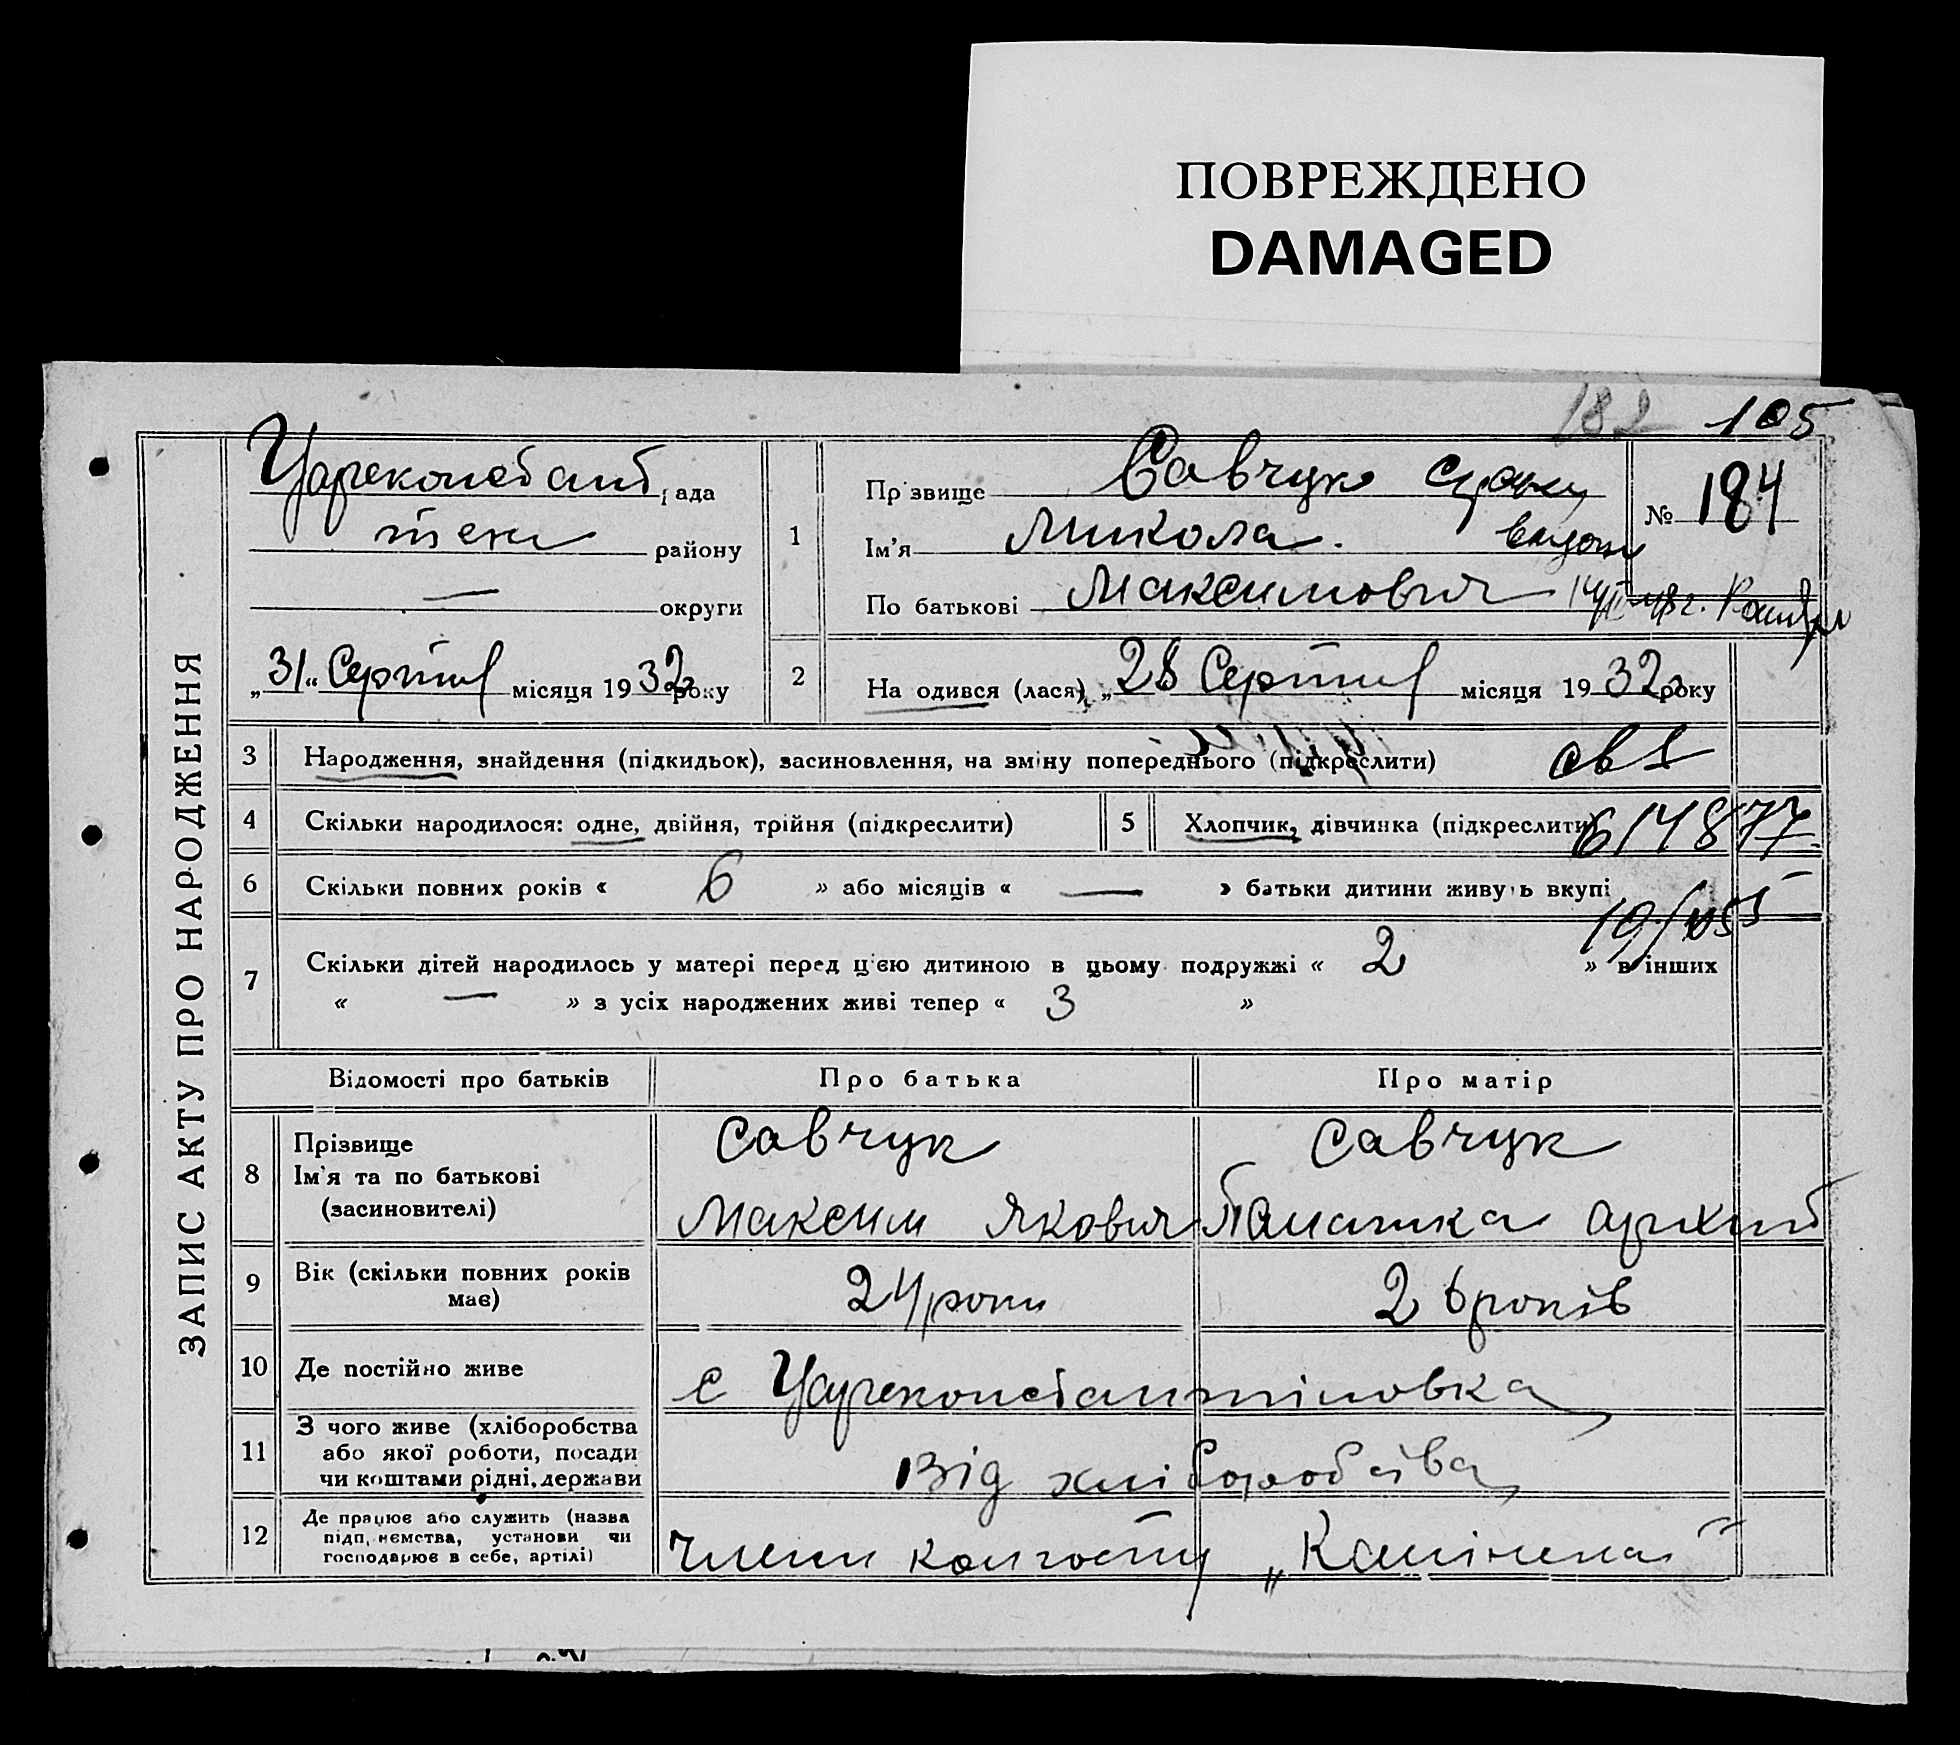 ПОВРЕЖДЕНО
DAMAGED
182 105
ЗАПИС АКТУ ПРО НАРОДЖЕННЯ
Цареконстант рада
району
— округи
„31“ Серпня місяця 1932 року
1
Прізвище Савчук
Ім'я Микола.
По батькові Максимович
№ 184
2
На одився (лася) „28 Серпня місяця 1932 року
3 Народження, знайдення (підкидьок), засиновлення, на зміну попереднього (підкреслити) св
4 Скільки народилося: одне, двійня, трійня (підкреслити)
5 Хлопчик, дівчинка (підкреслити) 614877
6 Скільки повних років « 6 » або місяців « — » батьки дитини живуть вкупі
7 Скільки дітей народилось у матері перед цією дитиною в цьому подружжі « 2 » в інших
« — » з усіх народжених живі тепер « 3 »
Відомості про батьків Про батька Про матір
8 Прізвище
Ім'я та по батькові
(засиновителі)
Савчук
Максим Якович
Савчук
9 Вік (скільки повних років
має)
24 роки
26 років
10 Де постійно живе
с Цареконстантіновка
11 З чого живе (хліборобства
або якої роботи, посади
чи коштами рідні, держави
Від хліборобства
12 Де працює або служить (назва
підп, иємства, установи чи
господарює в себе, артілі)
Члени колгоспу „Калініна"